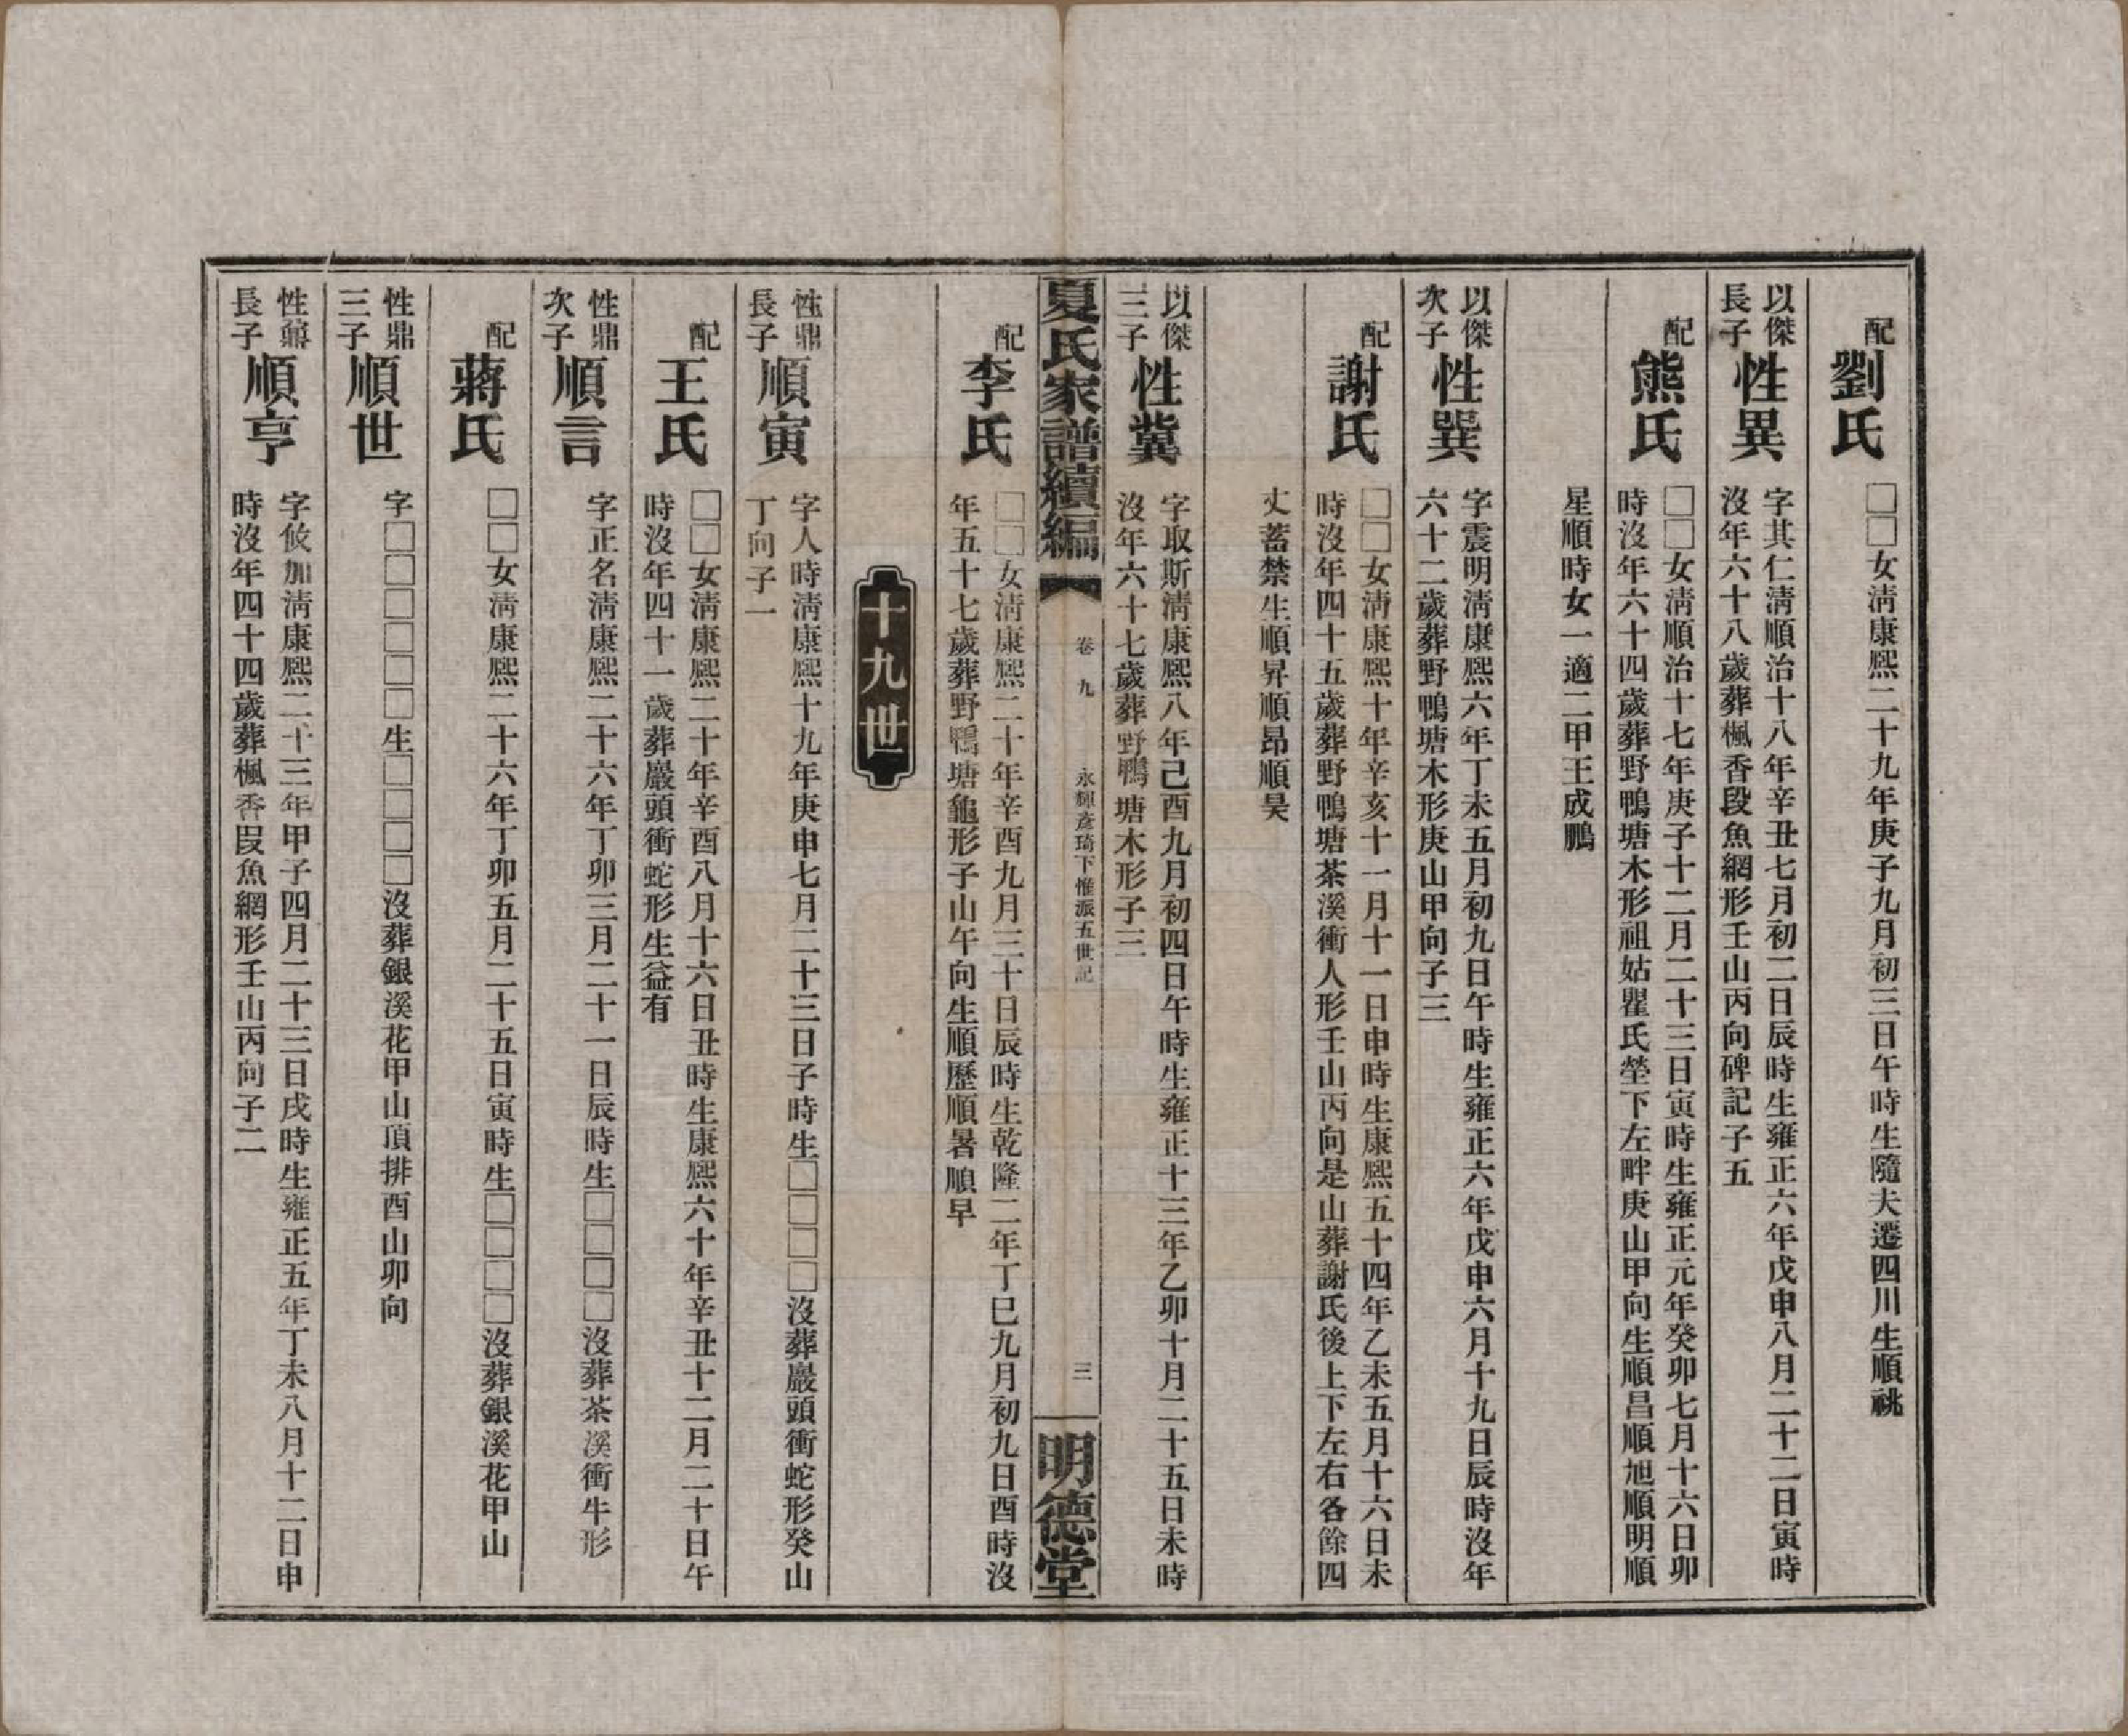 配劉氏
□□女淸康熙二十九年庚子九月初三日午時生隨夫遷四川生順祧
以傑長子性異
字其仁淸順治十八年辛丑七月初二日辰時生雍正六年戊申八月二十二日寅時
沒年六十八歲葬楓香段魚網形壬山丙向碑記子五
配熊氏
□□女淸順治十七年庚子十二月二十三日寅時生雍正元年癸卯七月十六日卯
時沒年六十四歲葬野鴨塘木形祖姑瞿氏塋下左畔庚山甲向生順昌順旭順明順
星順時女一適二甲王成鵬
以傑次子性巽
字震明淸康熙六年丁未五月初九日午時生雍正六年戊申六月十九日辰時沒年
六十二歲葬野鴨塘木形庚山甲向子三
配謝氏
□□女淸康熙十年辛亥十一月十一日申時生康熙五十四年乙未五月十六日未
時沒年四十五歲葬野鴨塘茶溪衝人形壬山丙向是山葬謝氏後上下左右各餘四
丈蓄禁生順昇順昂順昊
以傑三子性冀
字取斯淸康熙八年己酉九月初四日午時生雍正十三年乙卯十月二十五日未時
沒年六十七歲葬野鴨塘木形子三
夏氏家譜續編
卷九
永輝彥琦下惟派五世記
三
明德堂
配李氏
□□女淸康熙二十年辛酉九月三十日辰時生乾隆二年丁巳九月初九日酉時沒
年五十七歲葬野鴨塘龜形子山午向生順歷順暑順早
十九世
性鼎長子順寅
字人時淸康熙十九年庚申七月二十三日子時生□□□□沒葬巖頭衝蛇形癸山
丁向子一
配王氏
□□女淸康熙二十年辛酉八月十六日丑時生康熙六十年辛丑十二月二十日午
時沒年四十一歲葬巖頭衝蛇形生益有
性鼎次子順言
字正名淸康熙二十六年丁卯三月二十一日辰時生□□□□沒葬茶溪衝牛形
配蔣氏
□□女淸康熙二十六年丁卯五月二十五日寅時生□□□□沒葬銀溪花甲山
性鼎三子順世
字□□□□□□生□□□□沒葬銀溪花甲山頂排酉山卯向
性鼐長子順亨
字攸加淸康熙二十三年甲子四月二十三日戌時生雍正五年丁未八月十二日申
時沒年四十四歲葬楓香段魚網形壬山丙向子二